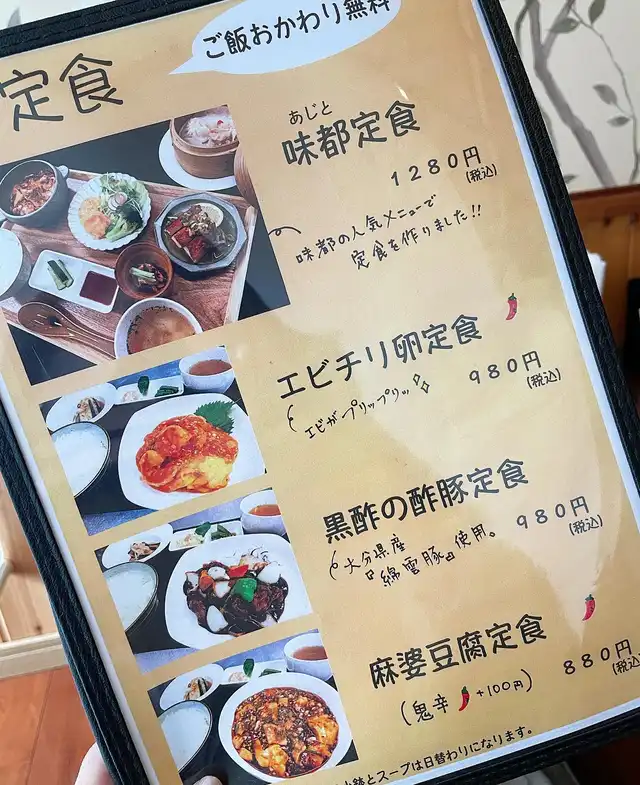 ご飯おかわり無料
定食
あじと
味都定食
1280円
(税込)
味都の人気メニューで
定食を作りました!!
エビチリ卵定食
980円
(税込)
エビがプリップリッ
黒酢の酢豚定食
980円
(税込)
大分県産
『綿雲豚』使用。
麻婆豆腐定食
880円
(税込)
(鬼辛 +100円)
小鉢とスープは日替わりになります。